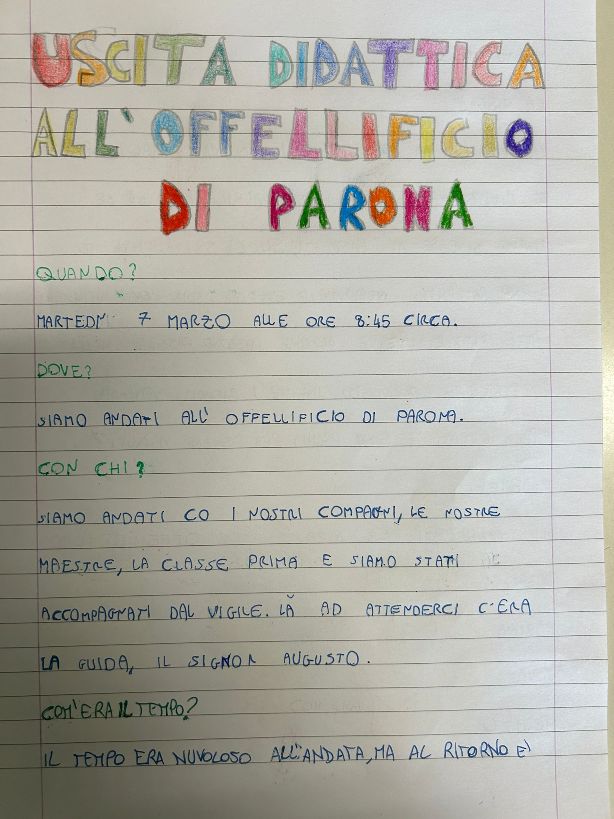 USCITA DIDATTICA
ALL'OFFELLIFICIO
DI PARONA
QUANDO?
MARTEDI' 7 MARZO ALLE ORE 8:45 CIRCA.
DOVE?
SIAMO ANDATI ALL' OFFELLIFICIO DI PARONA.
CON CHI?
SIAMO ANDATI CO I NOSTRI COMPAGNI, LE NOSTRE
MAESTRE, LA CLASSE PRIMA E SIAMO STATI
ACCOMPAGNATI DAL VIGILE. LÀ AD ATTENDERCI C'ERA
LA GUIDA, IL SIGNOR AUGUSTO.
COM'ERA IL TEMPO?
IL TEMPO ERA NUVOLOSO ALL'ANDATA, MA AL RITORNO E'